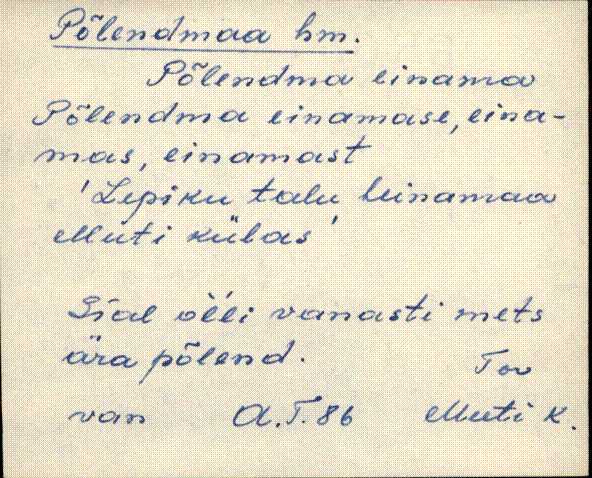 Põlendmaa hm.
Põlendma einama
Põlendma einamase, eina-
mas, einamast
'Lepiku talu heinamaa
Muti külas'
Sial õlli vanasti mets
ära põlend.
Tov
van A.T. 86 Muti k.